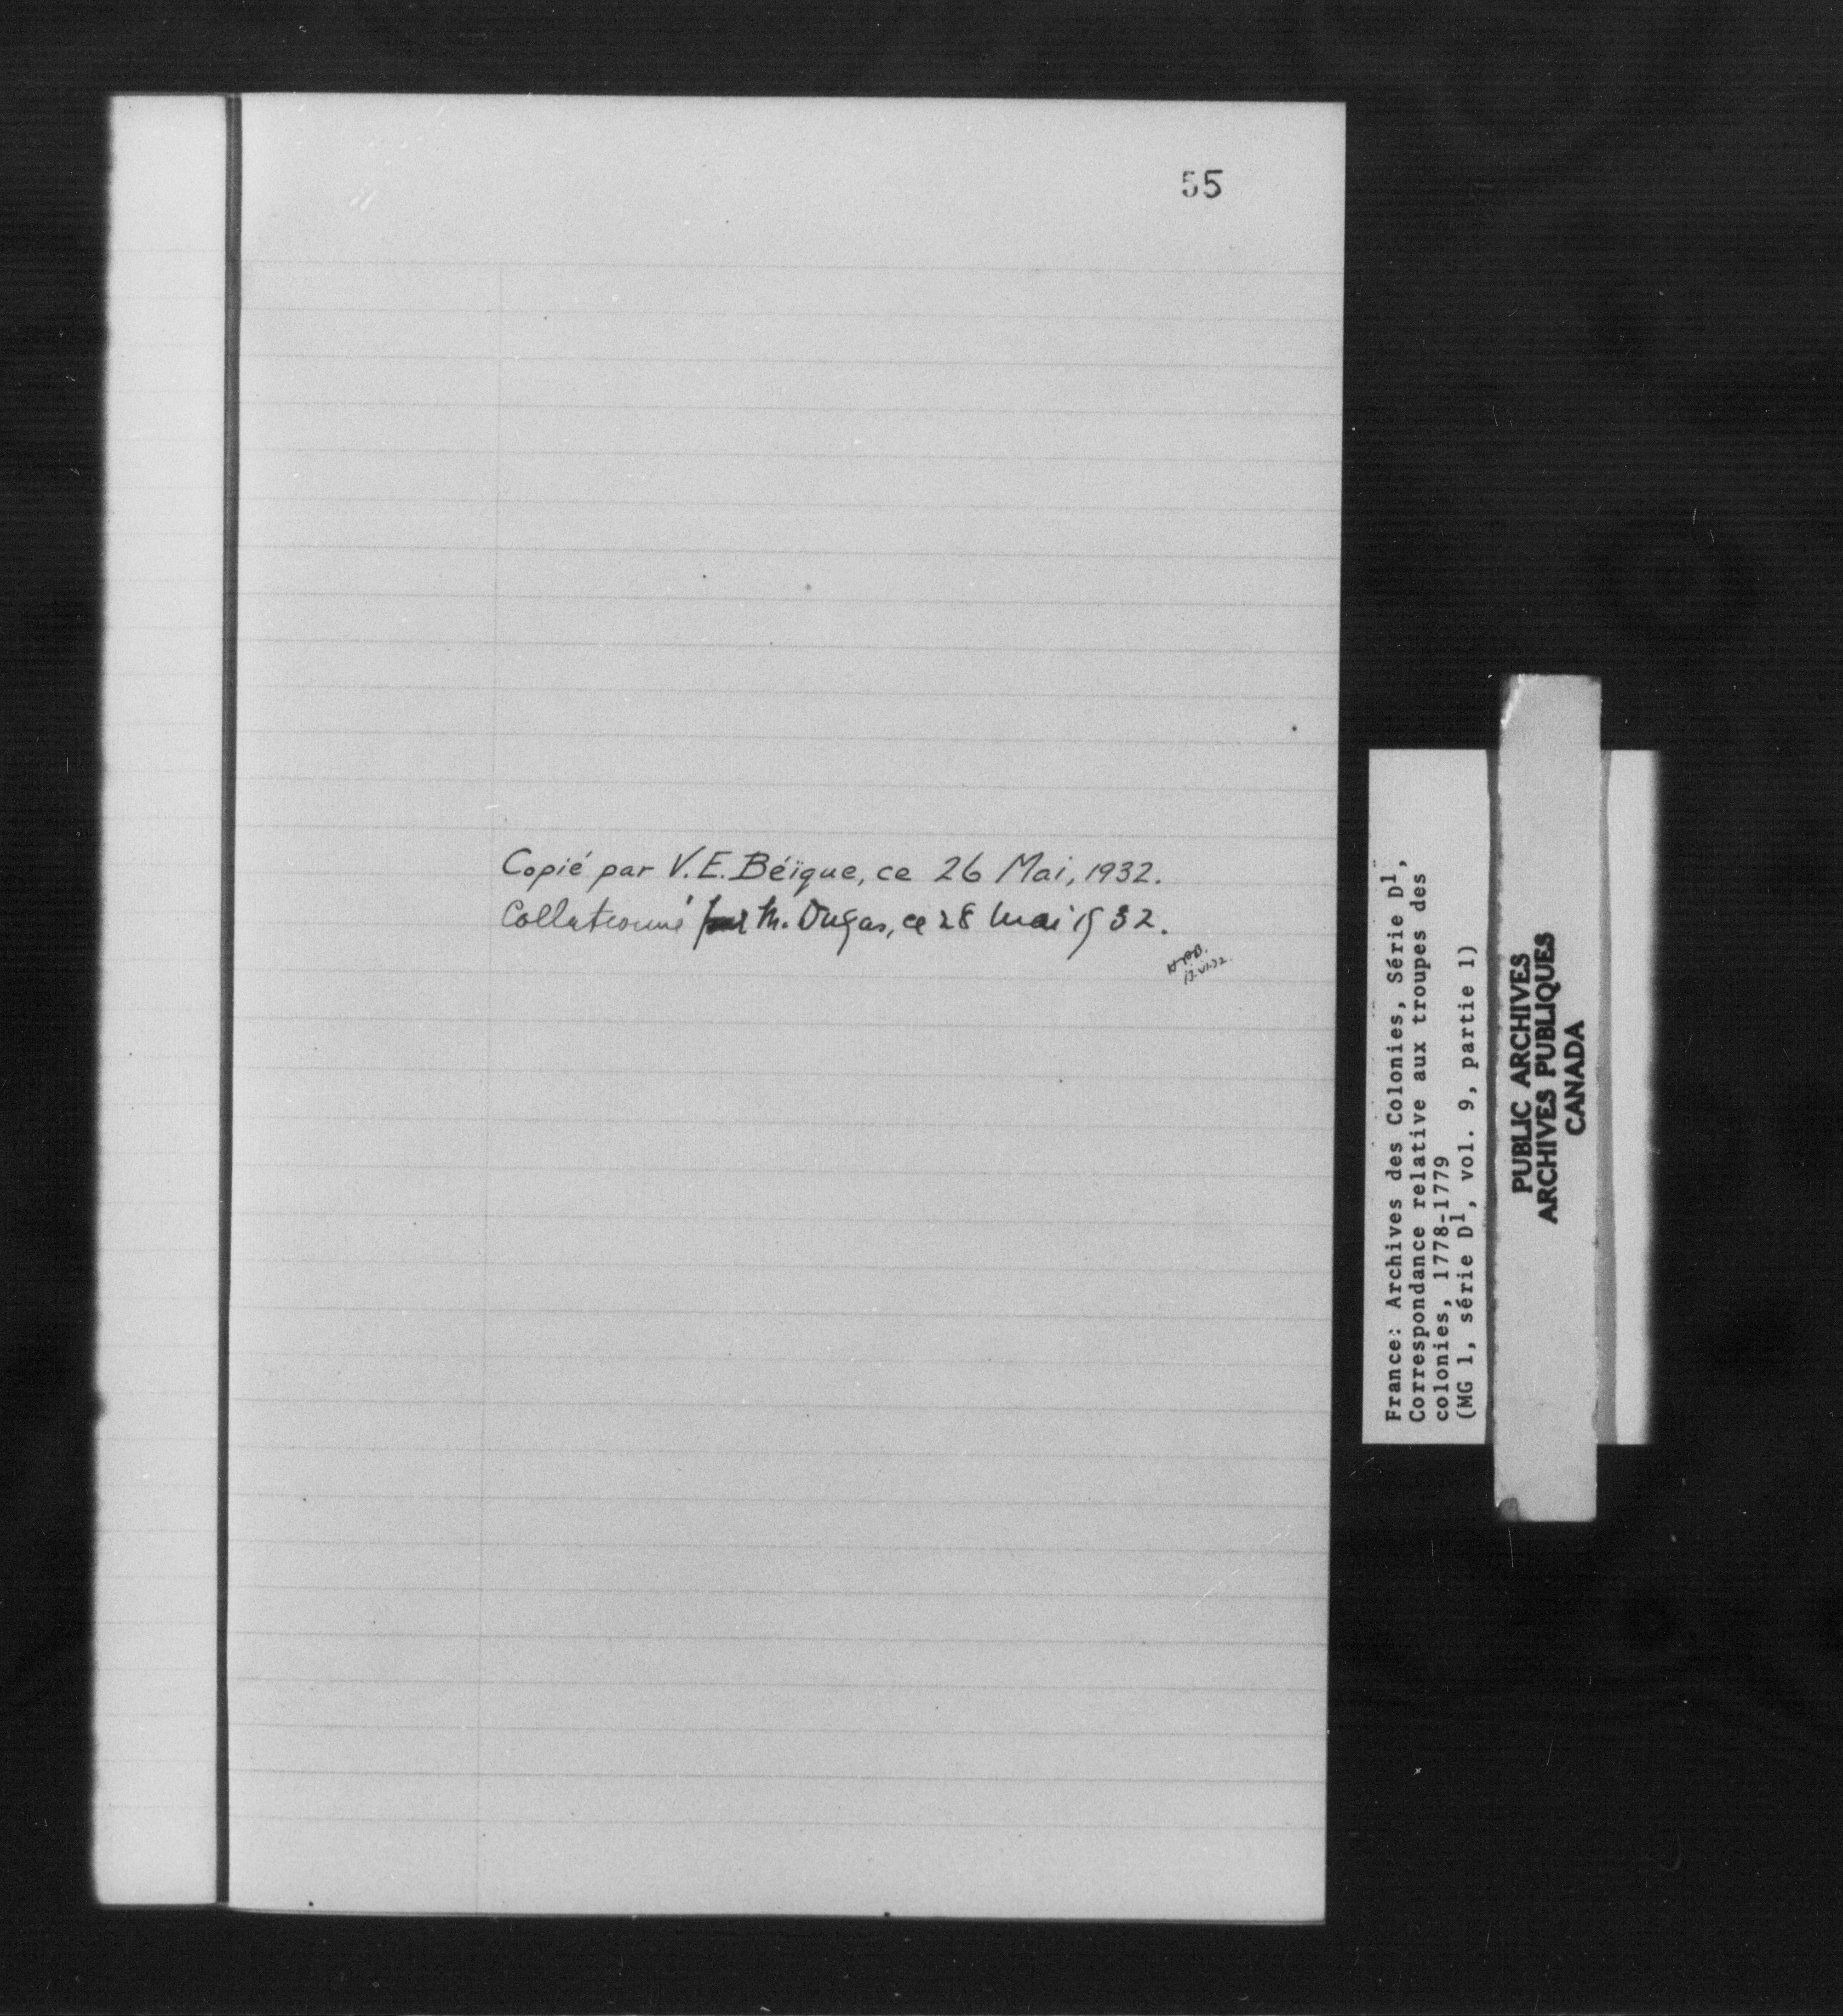 55
Copié par V. E. Béïque, ce 26 Mai, 1932.
Collationné par M. Dugas, ce 28 mai 1932.
France: Archives des Colonies, Série D1,
Correspondance relative aux troupes des
colonies, 1778-1779
(MG 1, série D1, vol. 9, partie 1)
PUBLIC ARCHIVES
ARCHIVES PUBLIQUES
CANADA